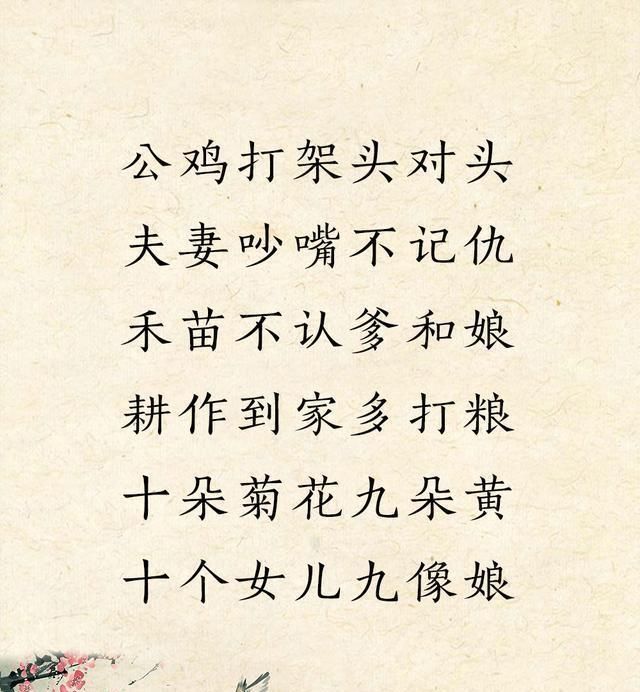 公鸡打架头对头
夫妻吵嘴不记仇
禾苗不认爹和娘
耕作到家多打粮
十朵菊花九朵黄
十个女儿九像娘